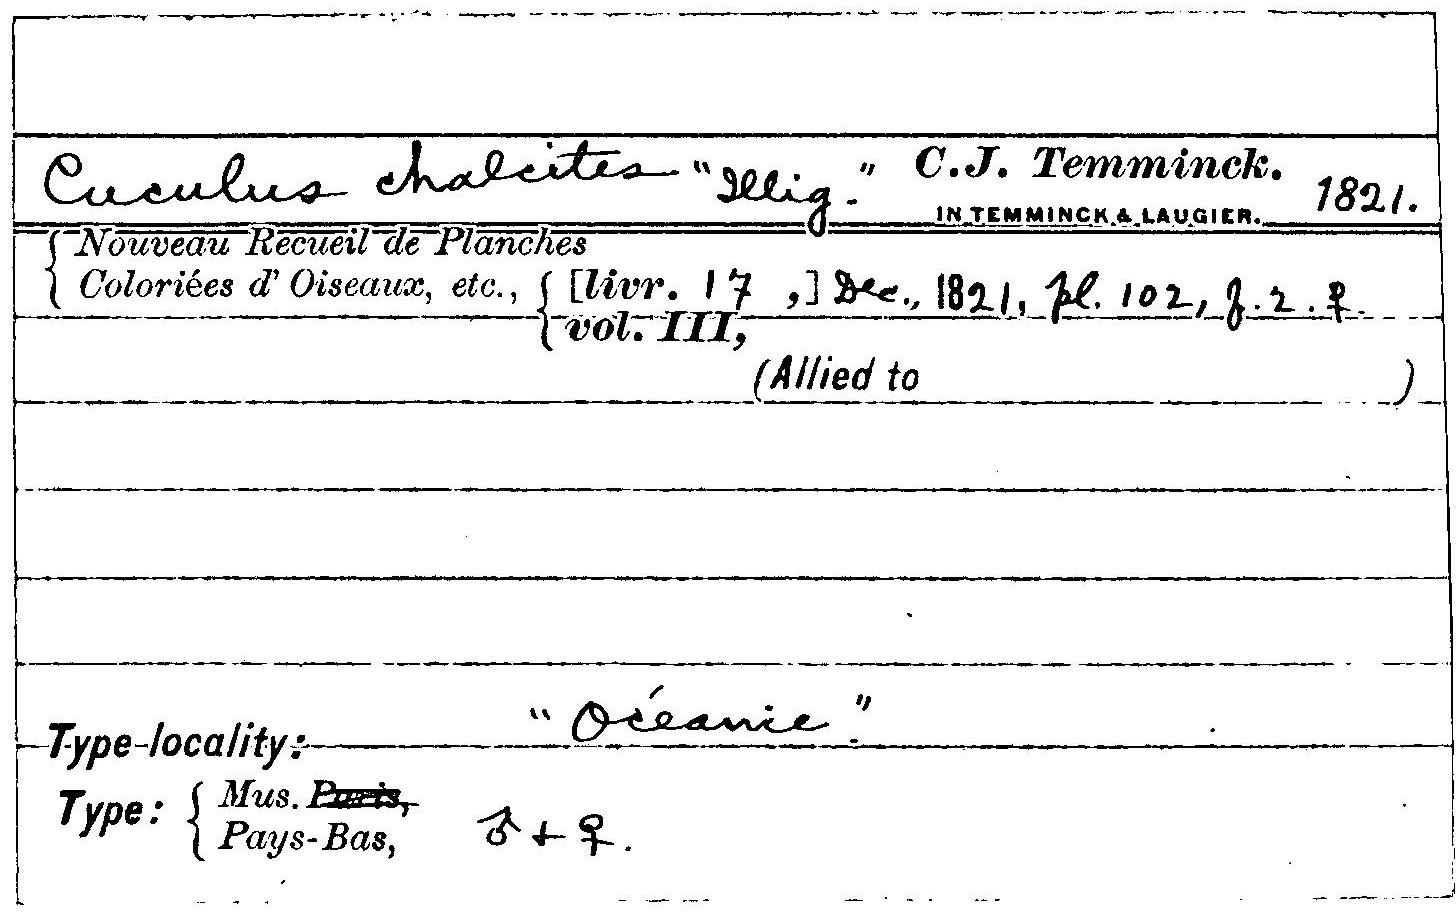 Cuculus chalcites "Illig." C.J. Temminck. 1821.
IN TEMMINCK & LAUGIER.
Nouveau Recueil de Planches
Coloriées d'Oiseaux, etc., [livr. 17 ,] Dec., 1821, pl. 102, f. 2. ♀.
vol. III,
(Allied to )
Type-locality: "Océanie".
Type: Mus. Paris,
Pays-Bas, ♂ + ♀.